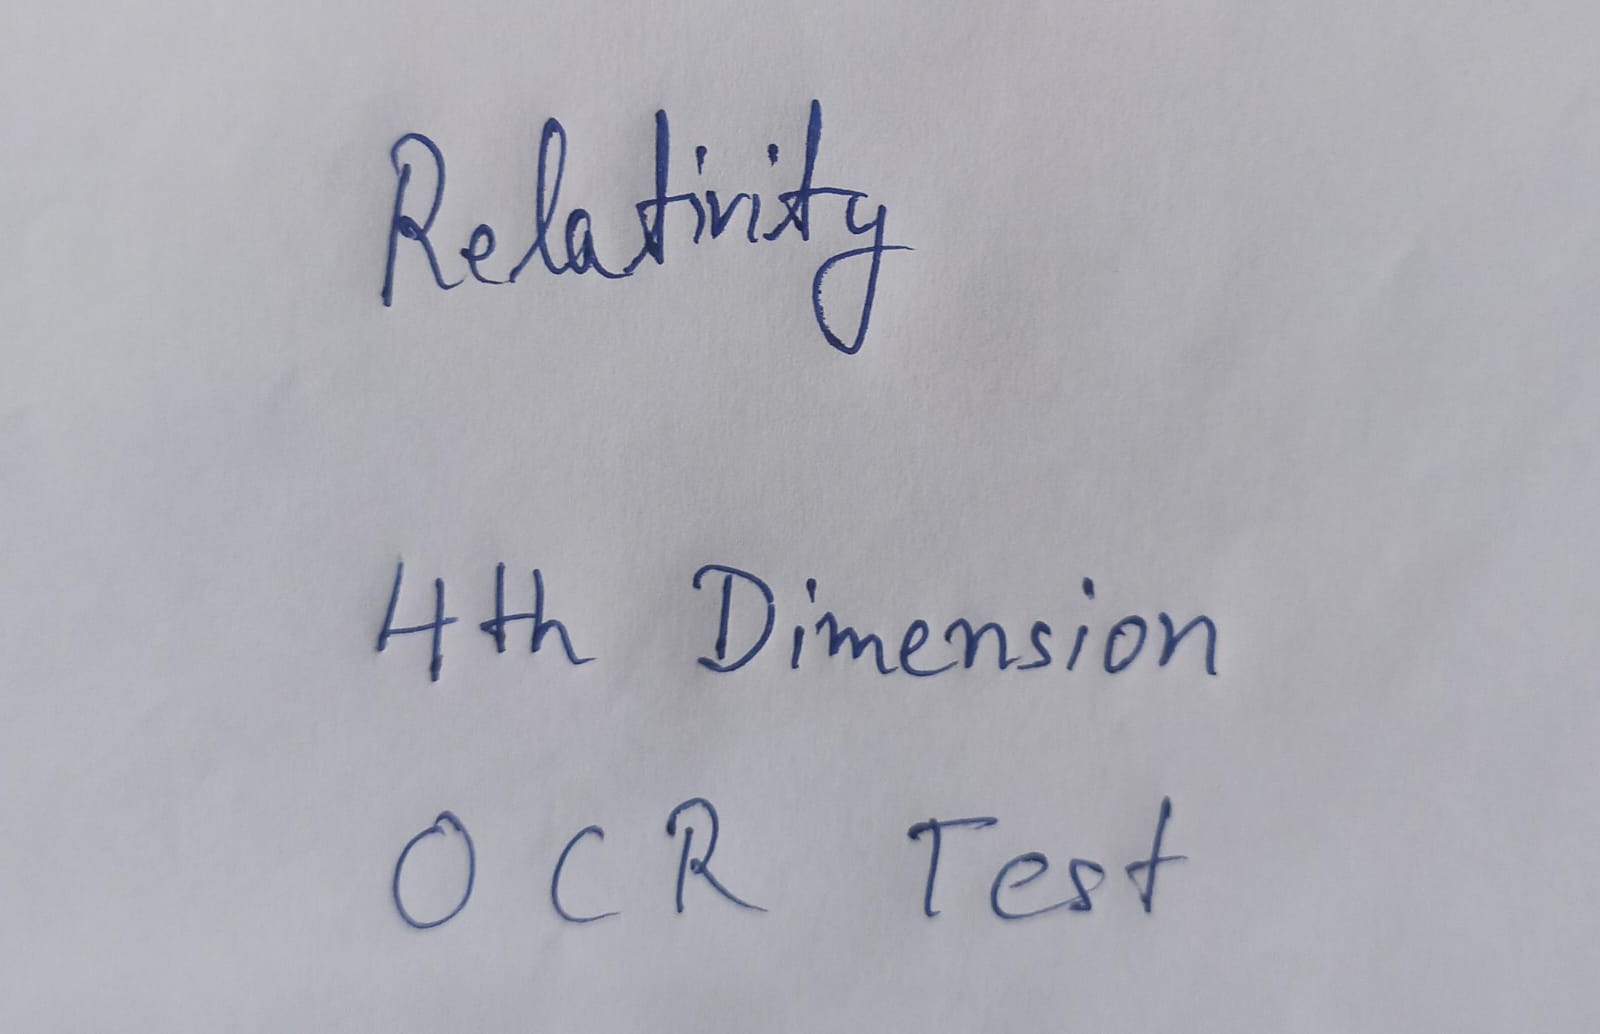 Relativity
4th Dimension
OCR Test